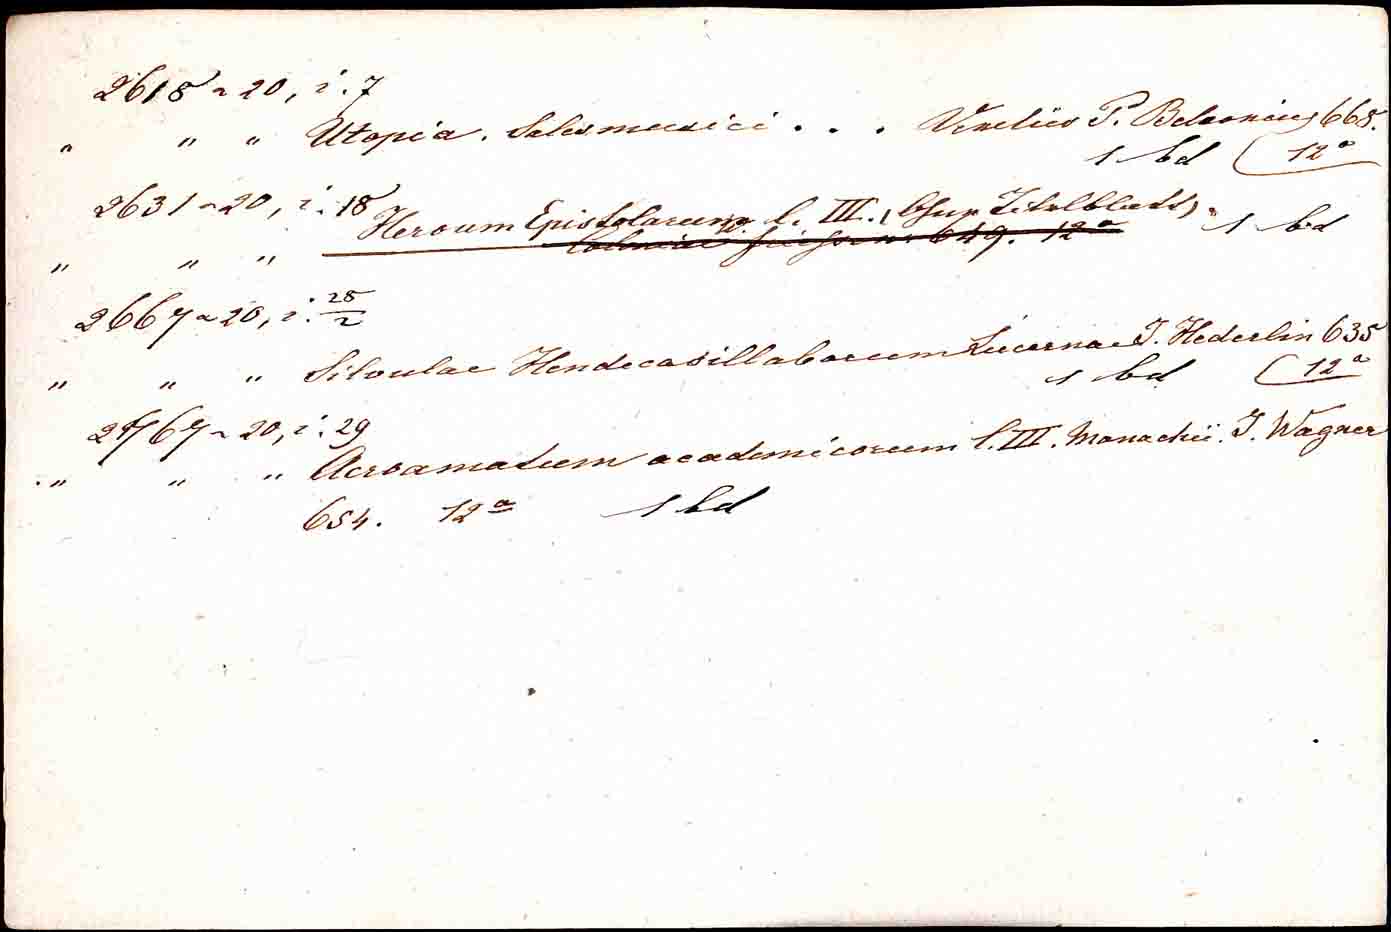 2618 ~ 20, i. 7
" " " Utopia. Sales musici . . . Venetiis P. Balleonius 668.
1 bd 12°
2631 ~ 20, i. 18
" " " Heroum Epistolarum l. III. (Ohne Titelblatt). 1 bd
649. 12°
2667 ~ 20, i. 28/2
" " " Silvulae Hendecasillaborum Lucernae J. Hederlin 635
1 bd 12°
2767 ~ 20, i. 29
" " " Acroamatum academicorum l. III. Monachii. J. Wagner
654. 12° 1 bd